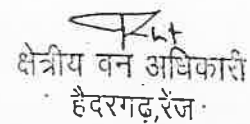 क्षेत्रीय वन अधिकारी
हैदरगढ़,रेंज.